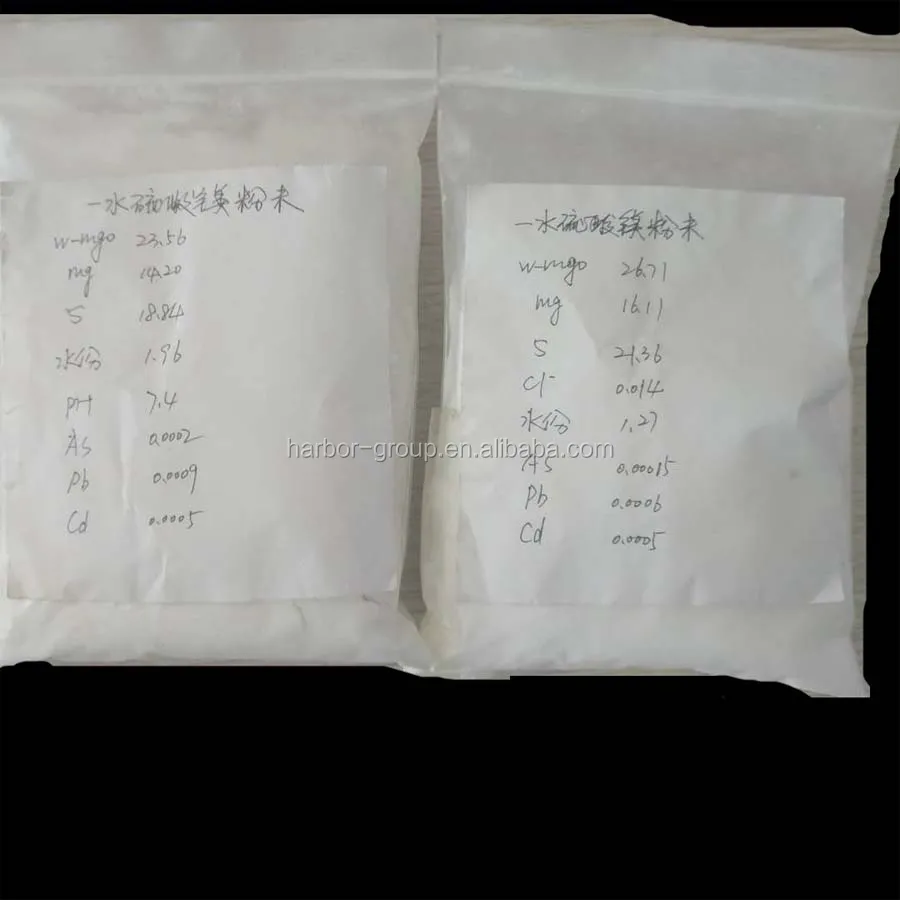 一水硫酸镁粉末
w-mgo 23.56
mg 14.20
S 18.84
水份 1.96
PH 7.4
As 0.0002
Pb 0.0009
Cd 0.0005
一水硫酸镁粉末
w-mgo 26.71
mg 16.11
S 21.36
Cl- 0.014
水份 1.27
As 0.00015
Pb 0.0006
Cd 0.0005
harbor-group.en.alibaba.com